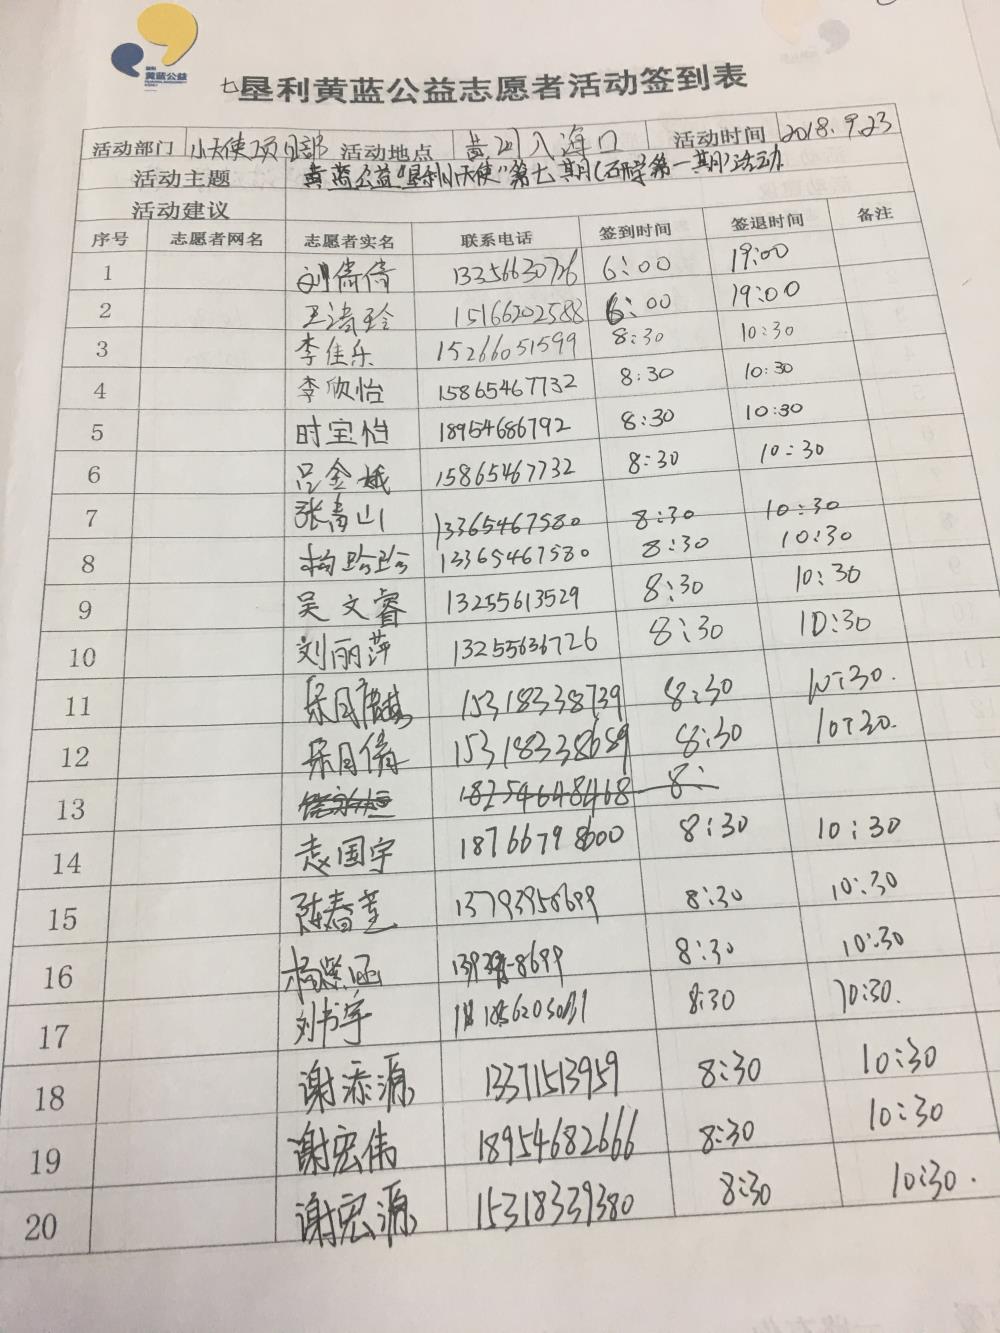 垦利
黄蓝公益
七垦利黄蓝公益志愿者活动签到表
活动部门 小天使项目部 活动地点 黄河入海口 活动时间 2018.9.23
活动主题 黄蓝公益"垦利小天使"第七期(研学第一期)活动
活动建议
序号 志愿者网名 志愿者实名 联系电话 签到时间 签退时间 备注
1 刘倩倩 13256630726 6:00 19:00
2 王涛玲 15166202588 6:00 19:00
3 李佳乐 15266051599 8:30 10:30
4 李欣怡 15865467732 8:30 10:30
5 时宝怡 18954686792 8:30 10:30
6 吕金娥 15865467732 8:30 10:30
7 张青山 13365467580 8:30 10:30
8 杨珍珍 13365467580 8:30 10:30
9 吴文睿 13255613529 8:30 10:30
10 刘丽萍 13255636726 8:30 10:30
11 15318338739 8:30 10:30.
12 15318338689 8:30 10:30.
13 18254648468 8:
14 国宇 18766798600 8:30 10:30
15 陈春 13793958699 8:30 10:30
16 杨紫涵 8:30 10:30
17 刘书宇 8:30 10:30.
18 谢添源 13371513959 8:30 10:30
19 谢宏伟 18954682666 8:30 10:30
20 谢宏源 15318339380 8:30 10:30.